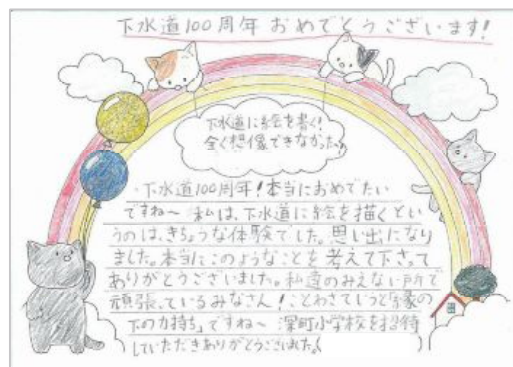 下水道100周年おめでとうございます!
下水道に絵を書く!
全く想像できなかった。
下水道100周年!本当におめでたい
ですね〜 私は、下水道に絵を描くとい
うのは、きちょうな体験でした。思い出になり
ました。本当にこのようなことを考えて下さって
ありがとうございました。私達のみえない所で
頑張っているみなさん!ことわざでいうと「縁の
下の力持ち」ですね〜 深町小学校を招待
していただきありがとうございました!